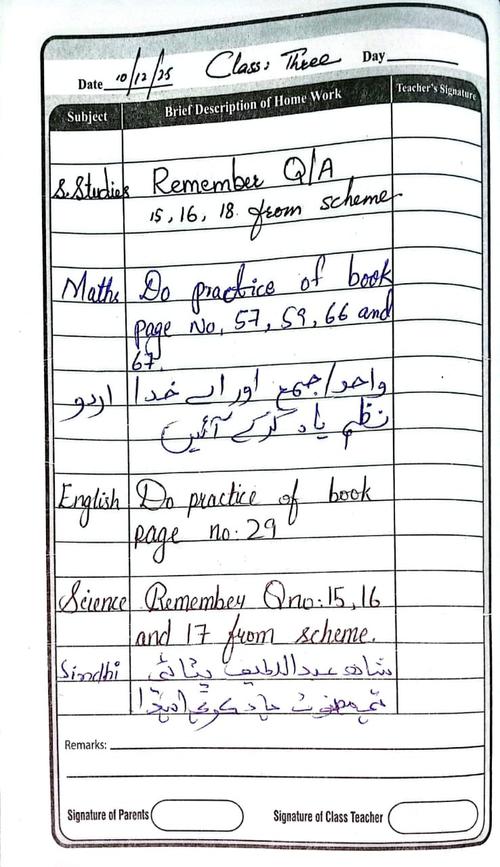 Date 10/12/25 Class: Three Day
Subject Brief Description of Home Work Teacher's Signature
S.Studies Remember Q/A
15, 16, 18. from scheme
Maths Do practice of book
page No, 57, 59, 66 and
67.
اردو واحد/جمع اور اے خدا
نظم یاد کرکے آئیں
English Do practice of book
page no: 29
Science Remember Qno: 15, 16
and 17 from scheme.
Sindhi شاھ عبداللطيف ڀٽائي
تي مضمون ياد ڪري
Remarks:
Signature of Parents Signature of Class Teacher